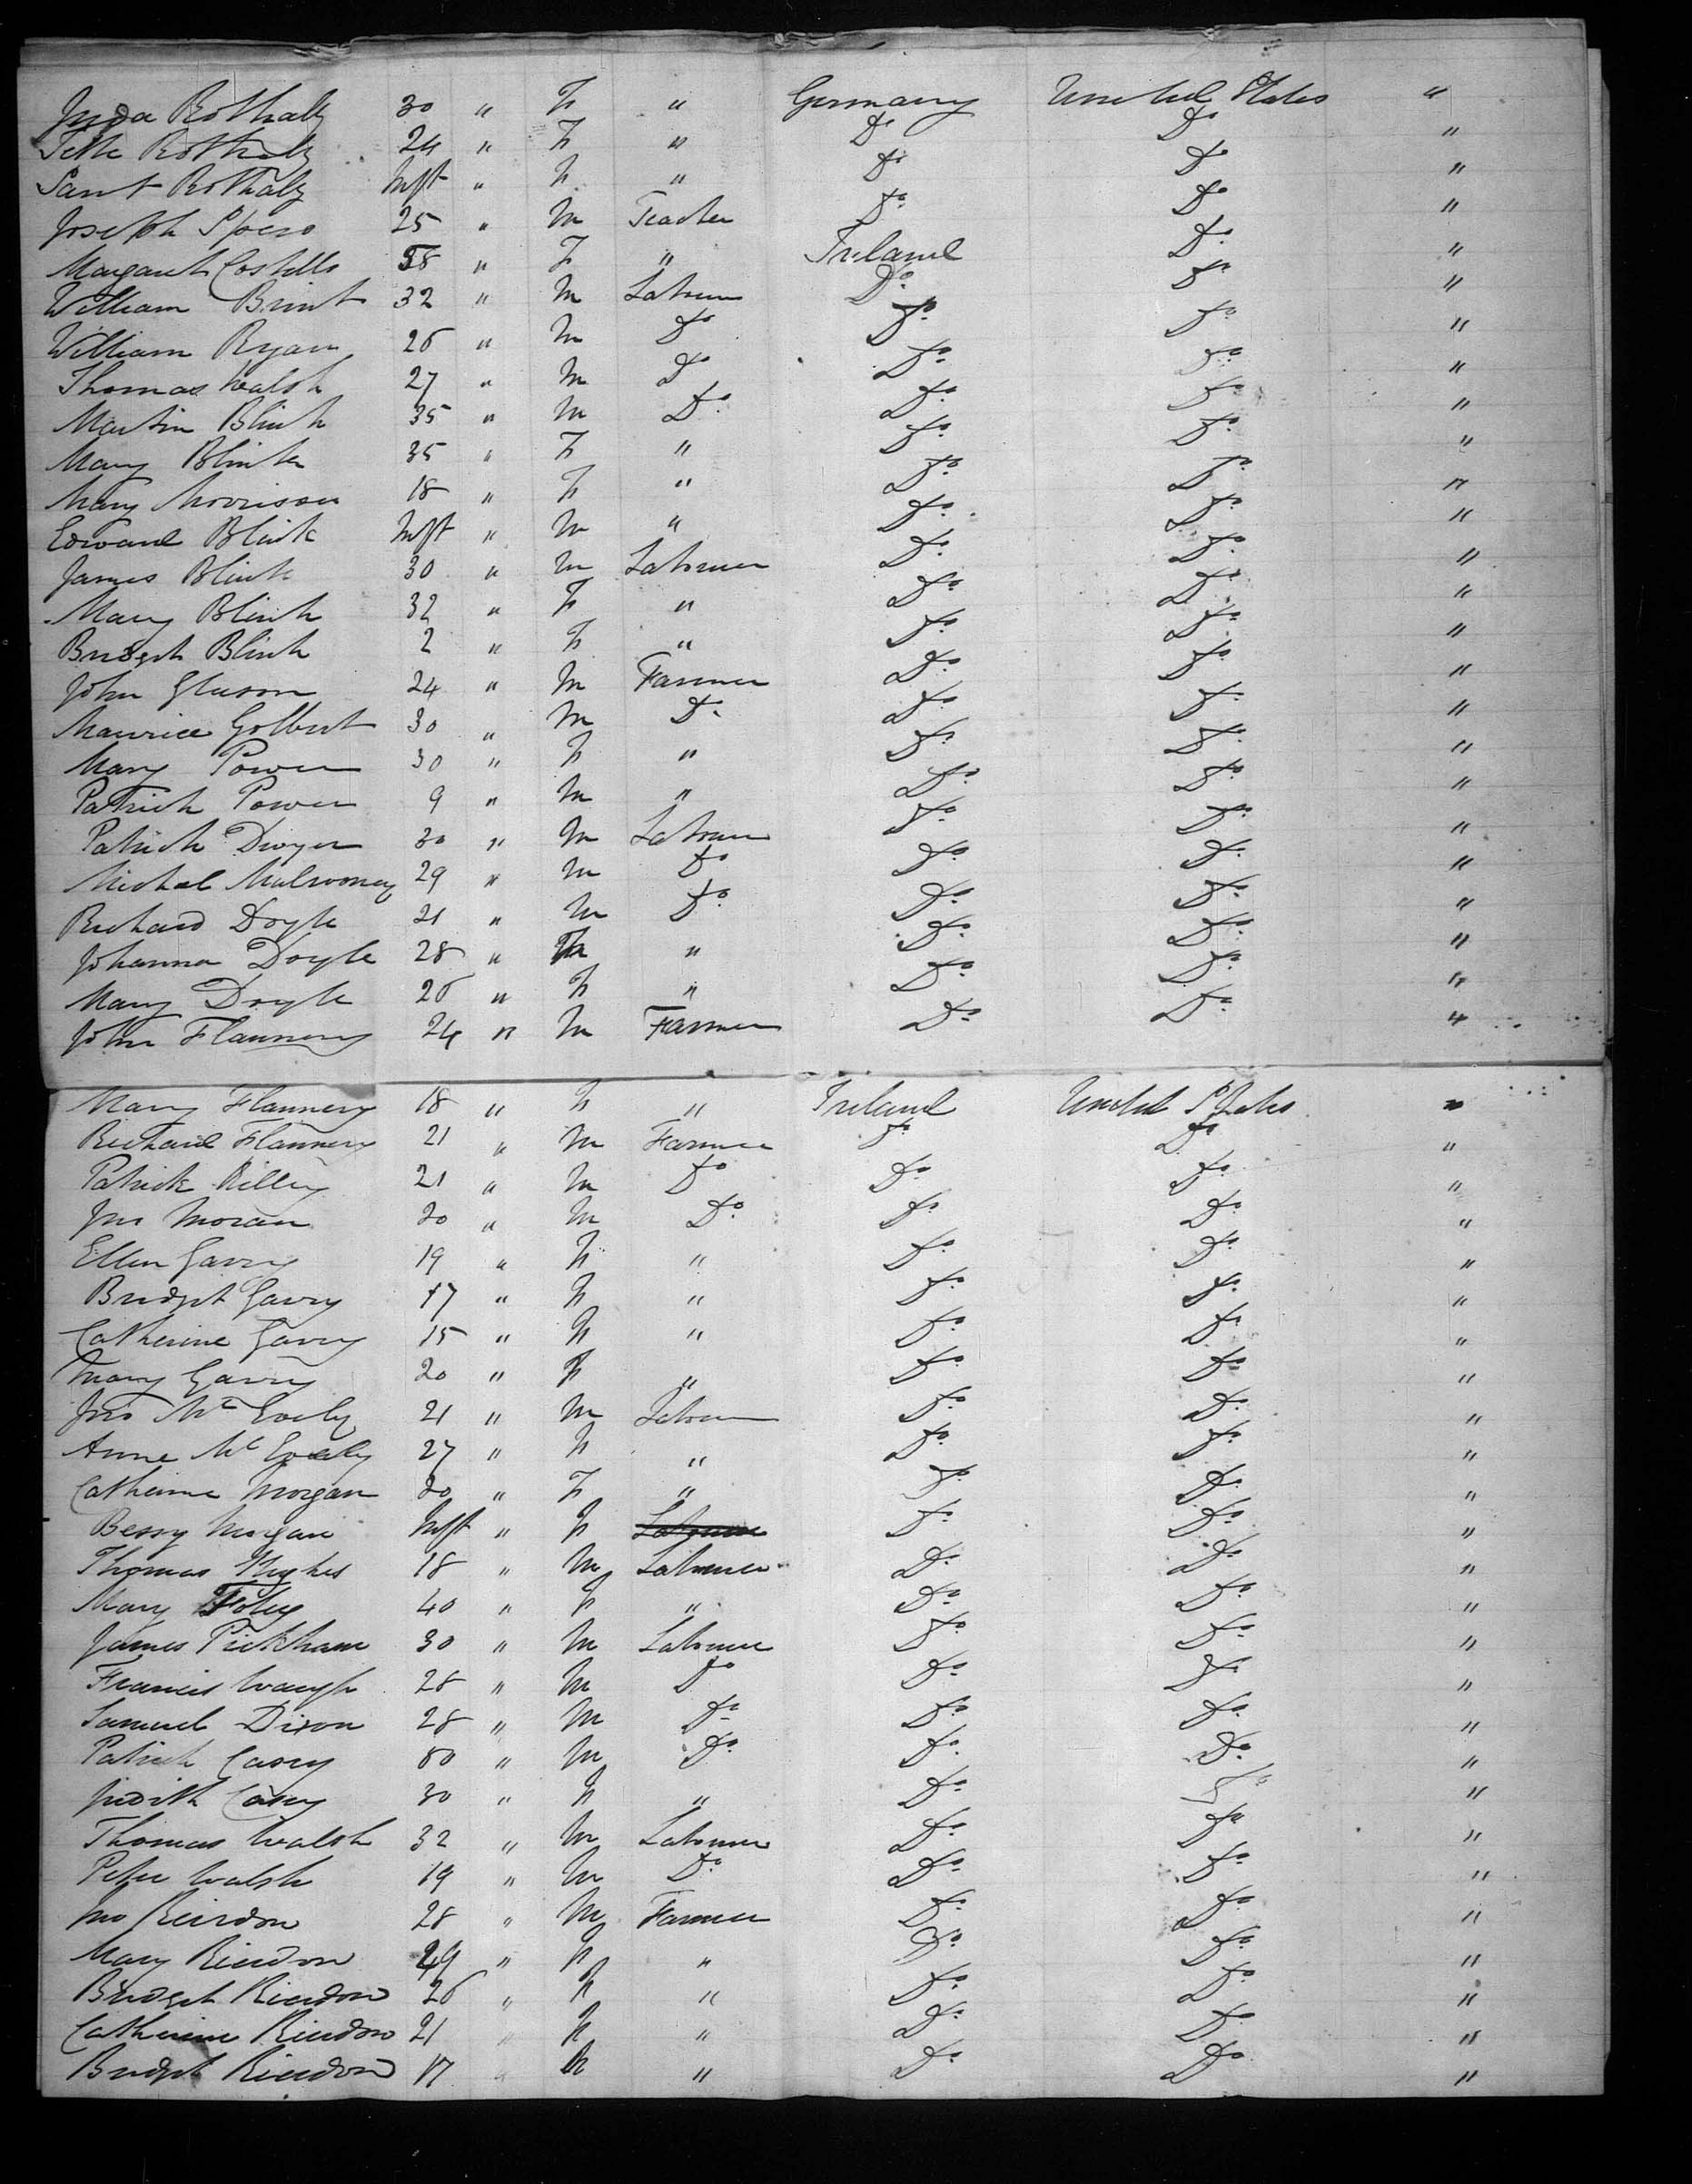 Juda Rothalz 30 " F " Germany United States "
Rothalz 24 " F " Do Do "
Rothalz Inft " F " Do Do "
Joseph Spero 25 " M Teacher Do Do "
Margaret Costello 58 " F " Ireland Do "
William Brint 32 " M Labourer Do Do "
William Ryan 26 " M Do Do Do "
Thomas Walsh 27 " M Do Do Do "
Martin Blink 35 " M Do Do Do "
Mary Blink 35 " F " Do Do "
Mary Morrison 18 " F " Do Do "
Edward Blink Inft " M " Do Do "
James Blink 30 " M Labourer Do Do "
Mary Blink 32 " F " Do Do "
Bridget Blink 2 " F " Do Do "
John Gleeson 24 " M Farmer Do Do "
Maurice Golbert 30 " M Do Do Do "
Mary Power 30 " F " Do Do "
Patrick Power 9 " M " Do Do "
Patrick Dwyer 30 " M Labourer Do Do "
Michael Mulrooney 29 " M Do Do Do "
Richard Doyle 21 " M Do Do Do "
Johanna Doyle 28 " F " Do Do "
Mary Doyle 26 " F " Do Do "
John Flannery 24 " M Farmer Do Do "
Mary Flannery 18 " F " Ireland United States "
Richard Flannery 21 " M Farmer Do Do "
Patrick Killey 21 " M Do Do Do "
Jno Moran 20 " M Do Do Do "
Ellen Garry 19 " F " Do Do "
Bridget Garry 17 " F " Do Do "
Catherine Garry 15 " F " Do Do "
Mary Garry 20 " F " Do Do "
Jno Mc 21 " M Labourer Do Do "
Anne Mc 27 " F " Do Do "
Catherine Morgan 20 " F " Do Do "
Bessy Morgan Inft " F Labourer Do Do "
Thomas Hughes 18 " M Labourer Do Do "
Mary Foley 40 " F " Do Do "
James Pickham 30 " M Labourer Do Do "
Francis Waugh 28 " M Do Do Do "
Samuel Dixon 28 " M Do Do Do "
Patrick Casey 80 " M Do Do Do "
Judith Casey 30 " F " Do Do "
Thomas Walsh 32 " M Labourer Do Do "
Peter Walsh 19 " M Do Do Do "
Jno Reirdon 28 " M Farmer Do Do "
Mary Reirdon 29 " F " Do Do "
Bridget Reirdon 26 " F " Do Do "
Catherine Reirdon 21 " F " Do Do "
Bridget Reirdon 17 " F " Do Do "